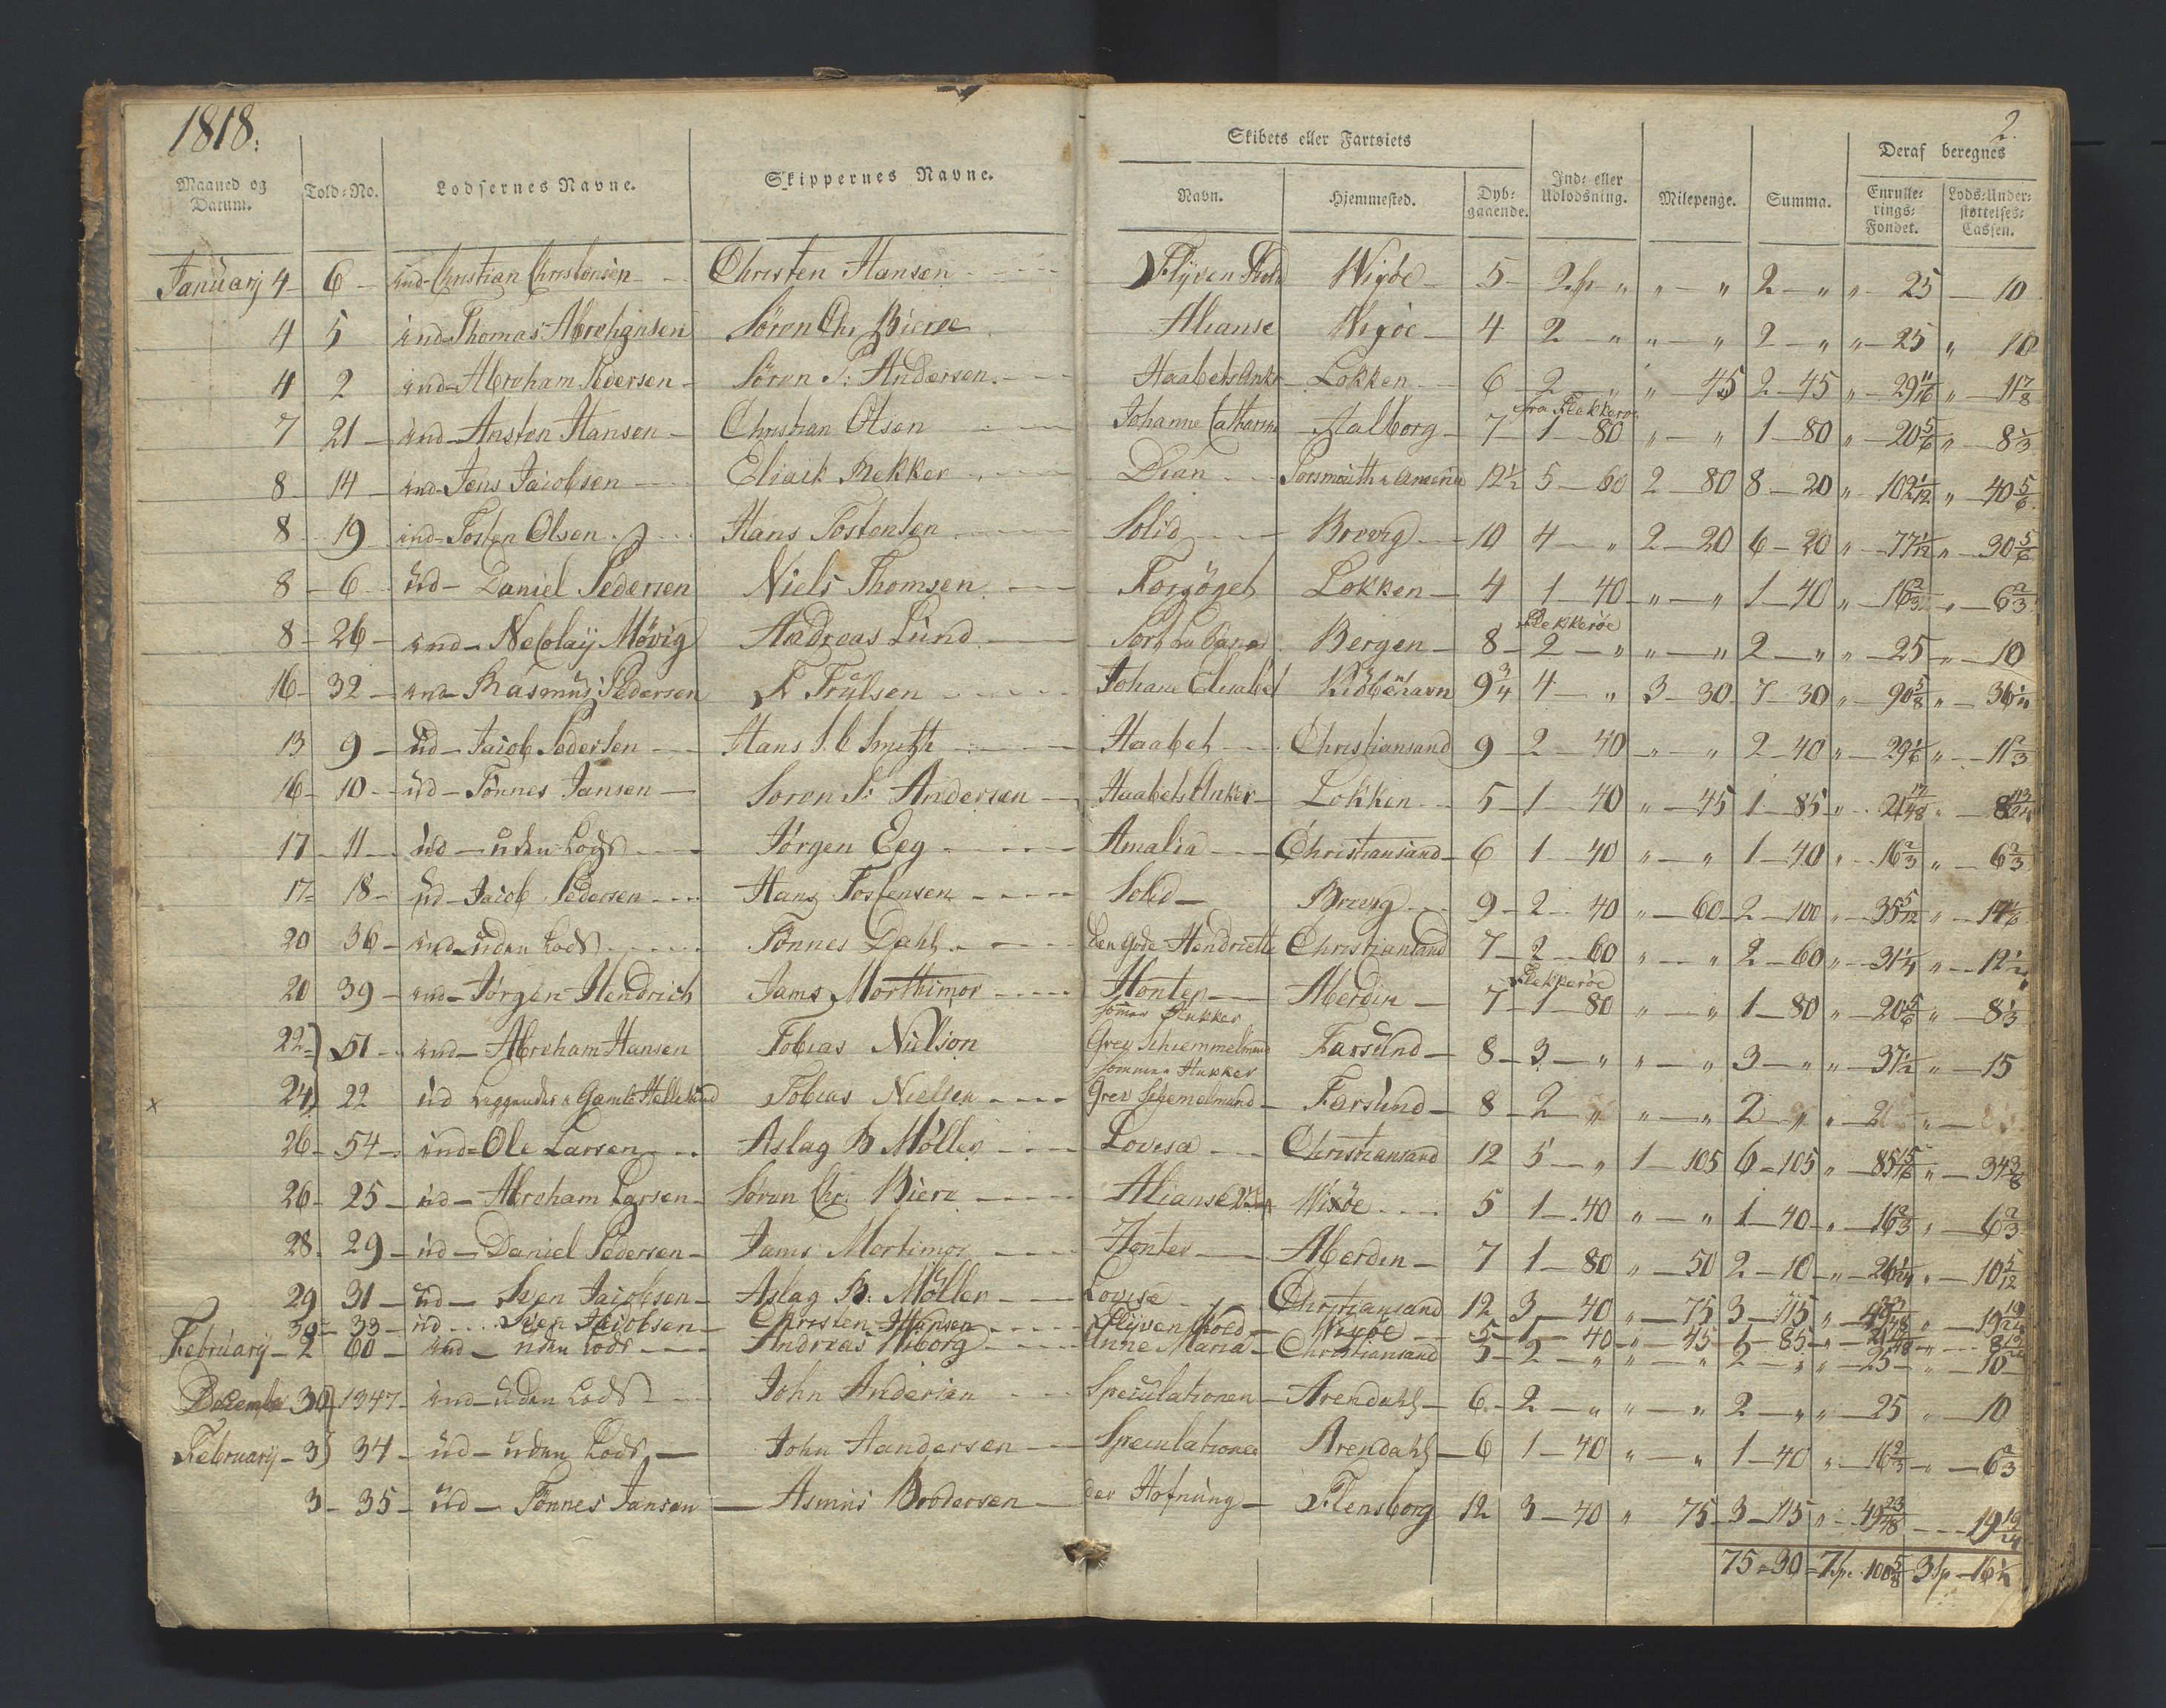 1818.
2.
Skibets eller Fartøiets
Deraf beregnes
Maaned og Datum. Told-No. Lodsernes Navne. Skippernes Navne. Navn. Hjemmested. Dybgaaende. Ind- eller Udlodsning. Milepenge. Summa. Enrullerings-Fondet. Lods-Understøttelses-Cassen.
Januarij 4 6 ind Christian Christensen Christen Hansen Flyven Wigöe 5 2 sp " " " 2 " " 25 10
4 5 ind Thomas Abrahgnsen Sören Chr Biere Alianse Wigöe 4 2 " " " 2 " " 25 " 10
4 2 ind Abroham Pedersen Sören P: Andersen Haabets Anker Lokken 6 2 " " 45 2 45 " 29 11/16 " 11 7/8
fra Flekkeroe
7 21 ind Anston Hansen Christian Olsen Johanne Catharine Aalborg 7 1 80 " " 1 80 " 20 5/6 " 8 1/3
8 14 ind Jens Jaiobsen Eliack Rekker Dian Porsmouth i America 12 1/2 5 60 2 80 8 20 " 102 1/12 " 40 5/6
8 19 ind Tosten Olsen Hans Tostensen Solid Brevig 10 4 " 2 20 6 20 " 77 1/12 " 30 5/6
8 6 ud Daniel Pedersen Niels Thomsen Forsöget Lokken 4 1 40 " " 1 40 " 16 2/3 " 6 2/3
Flekkeröe
8 26 ind Nicolaij Mövig Andreas Lund Bergen 8 2 " " " 2 " " 25 " 10
16 32 ind Rasmus Pedersen Trulsen Johane Elisabet Kiöbehavn 9 3/4 4 " 3 30 7 30 " 90 5/8 " 36 1/4
13 9 ud Jaiob Pedersen Hans Smith Haabet Christiansand 9 2 40 " " 2 40 " 29 1/6 " 11 2/3
16 10 ud Tönnes Jansen Soren P: Andersen Haabets Anker Lokken 5 1 40 " 45 1 85 " 21 17/48 " 8 13/24
17 11 ud uden Lods Jörgen Eeg Amalia Christiansand 6 1 40 " " 1 40 " 16 2/3 " 6 2/3
17 18 ud Jaiob Pedersen Hans Tostensen Solid Brevig 9 2 40 " 60 2 100 " 35 5/12 " 14 1/6
20 36 ind uden Lods Tönnes Dahl den gode Hendriette Christiansand 7 2 60 " " 2 60 " 31 1/4 " 12 1/2
Flekkeröe
20 39 ind Jörgen Hendrich Jams Morthimor Honter Aberdin 7 1 80 " " 1 80 " 20 5/6 " 8 1/3
Hukker
22 51 ind Abroham Hansen Tobias Nielson Grev Schiemmelmand Farsund 8 3 " " " 3 " " 37 1/2 " 15
Hukker
x 24 22 ud Liggendes i Gamle Hellesund Tobias Nielsen Grev Schemelmand Farsund 8 2 " " " 2 " "
26 54 ind Ole Larsen Aslag B Möller Lovisa Christiansand 12 5 " 1 105 6 105 " 85 15/16 " 34 3/8
26 25 ud Abroham Larsen Sören Chr. Biere Alianse Wixöe 5 1 40 " " 1 40 " 16 2/3 " 6 2/3
28 29 ud Daniel Pedersen Jams Mortimor Honter Aberdin 7 1 80 " 50 2 10 " 26 1/24 " 10 5/12
29 31 ud Sven Jaiobsen Aslag B: Möller Lovise Christiansand 12 3 40 " 75 3 115 " 49 23/48 " 19 19/24
30 33 ud Sven Jaiobsen Christen Hansen Flyven Wixöe 5 1 40 " 45 1 85 " 21 17/48 " 8 13/24
Februarij 2 60 ind uden Lods Andreas Wiborg Anne Maria Christiansand 5 2 " " " 2 " " 25 " 10
Dezember 30 1347 ind uden Lods John Andersen Speculationen Arendahl 6 2 " " " 2 " " 25 " 10
Februarij 3 34 ud uden Lods John Aandersen Speculationen Arendahl 6 1 40 " " 1 40 " 16 2/3 " 6 2/3
3 35 ud Tönnes Jansen Asmus Brodersen der Hofnung Flensborg 12 3 40 " 75 3 115 " 49 23/48 19 19/24
75 30 7 sp. 100 5/8 3 sp 16 1/4